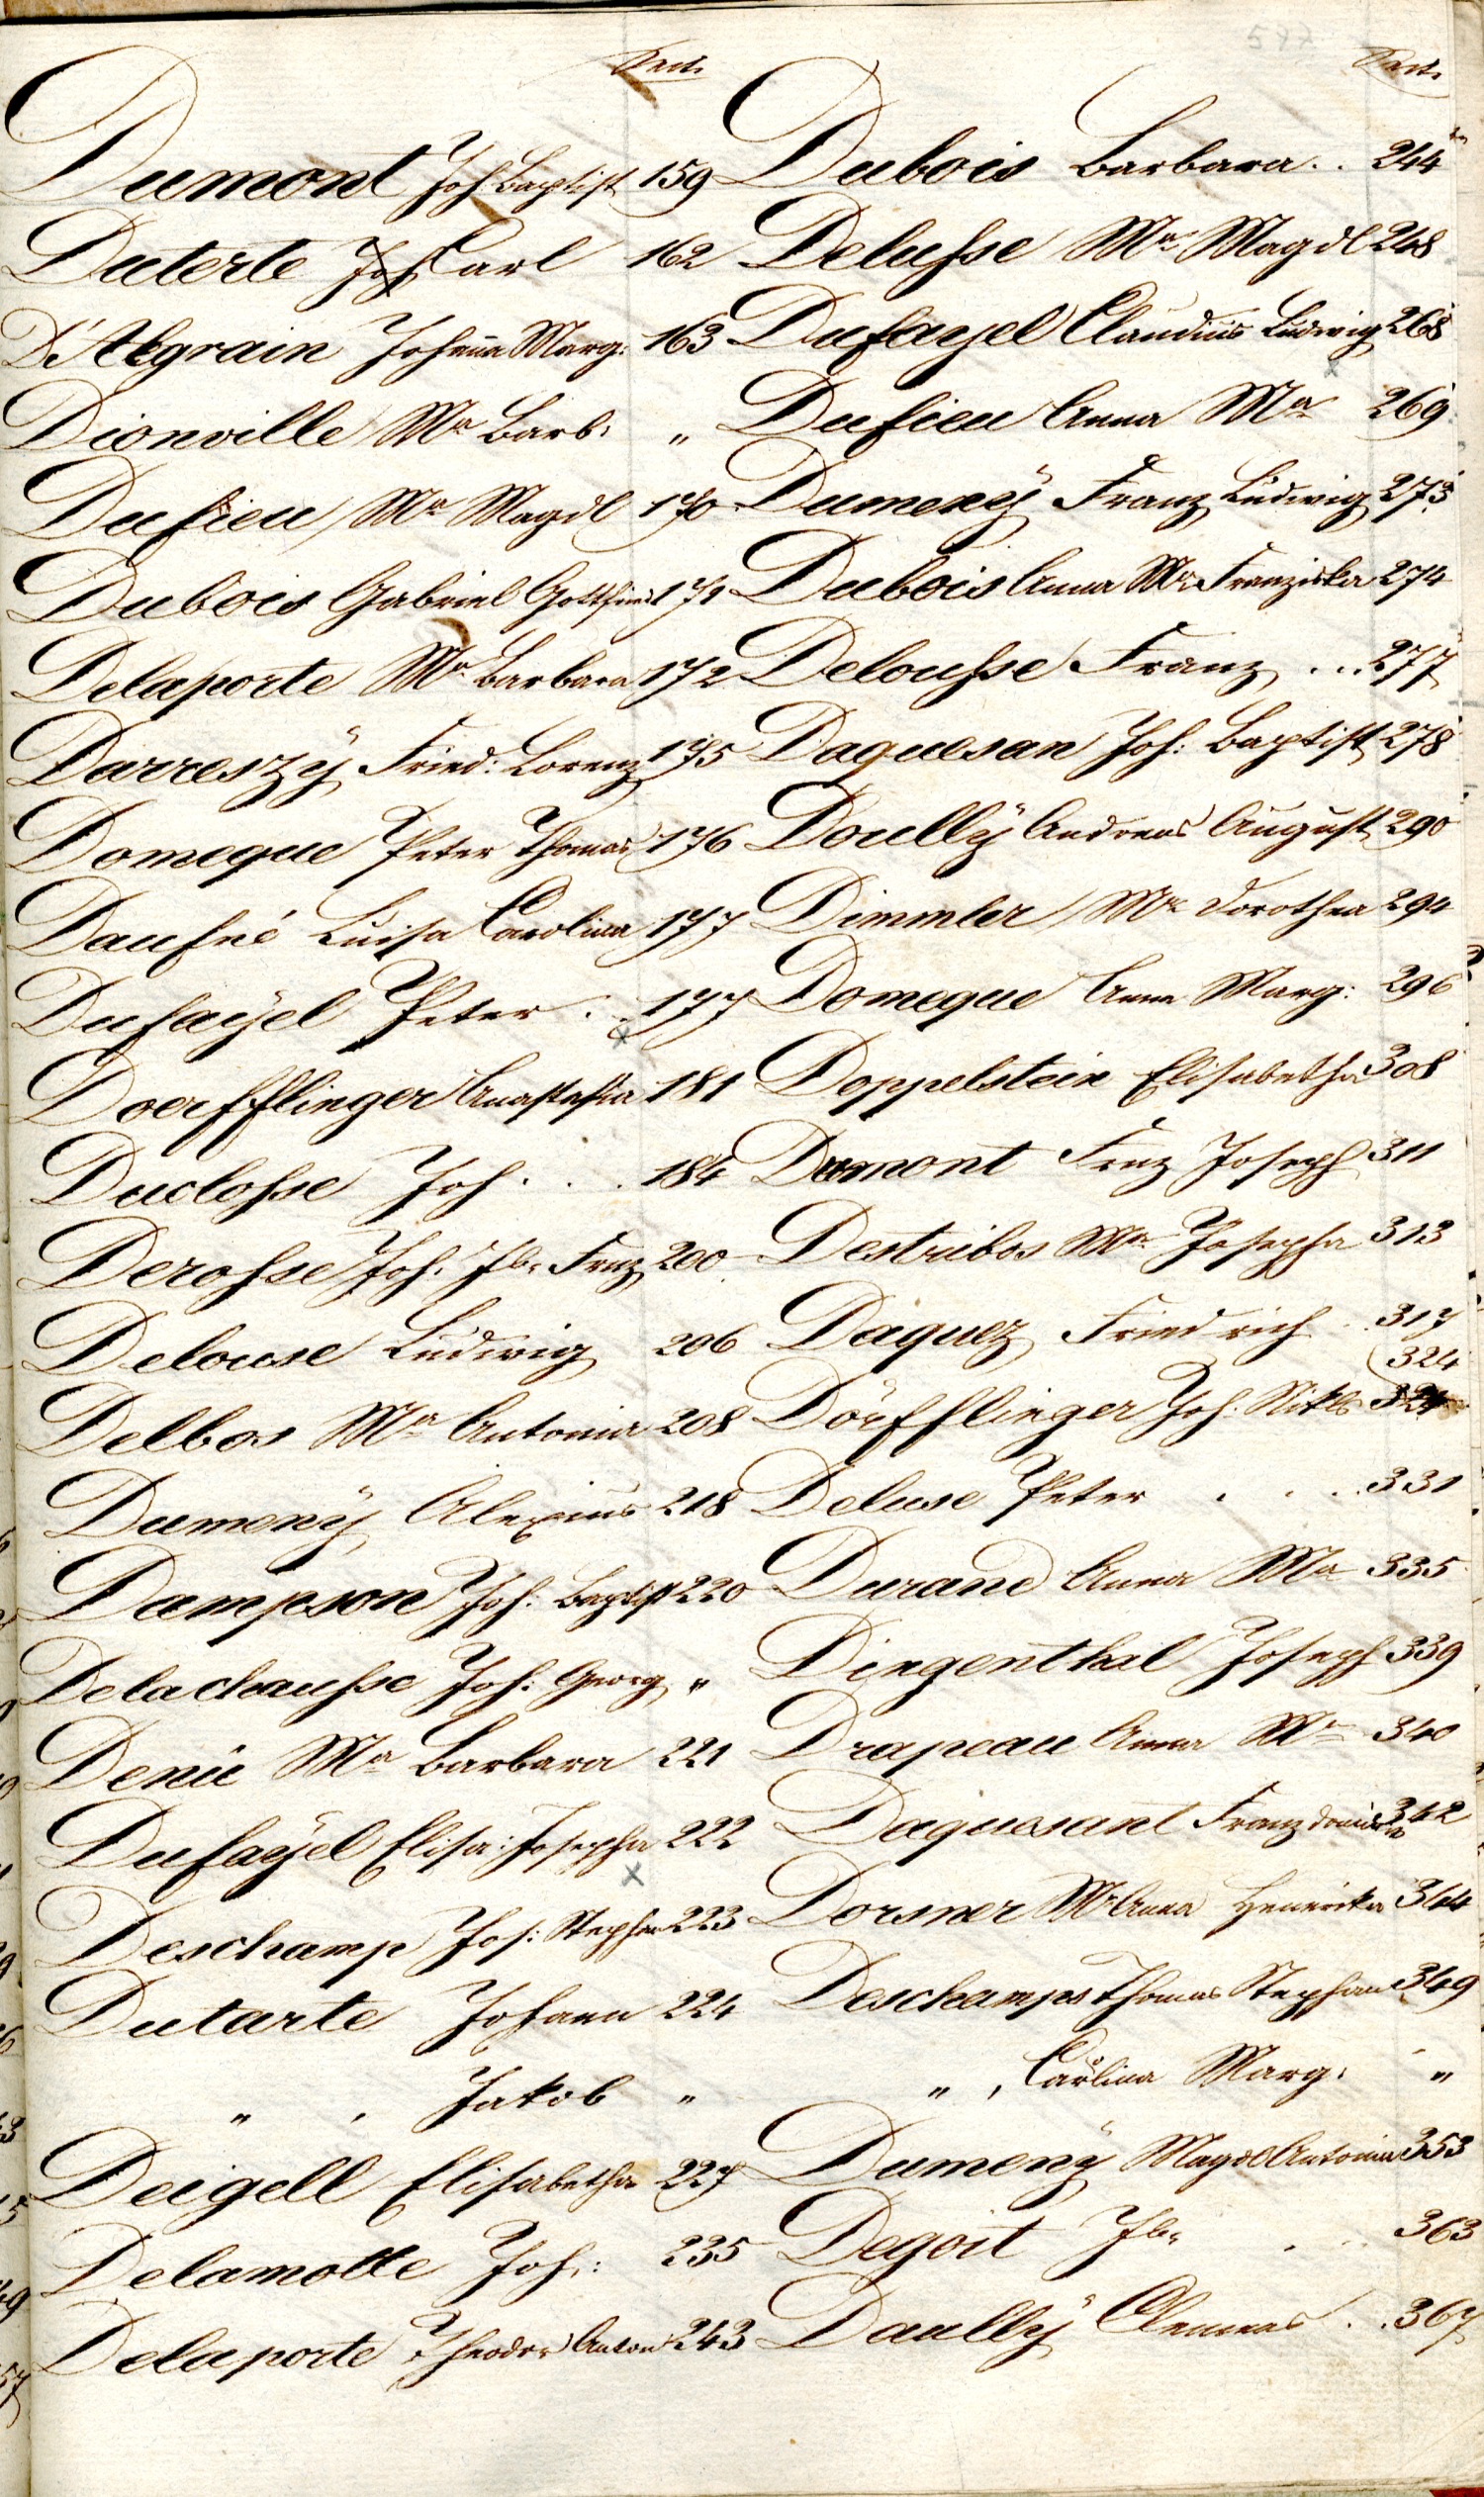 Dumont Joh. Baptist 159
Duterte Carl 162
D'Abgrain Johanna Marg: 163
Dionville Ma Barb. "
Dufieu Ma Magdl 170
Dubois Gabriel Gottfried 171
Delaporte Ma Barbara 172
Darreszÿ Fried: Lorenz 175
Domeque Peter Thomas 176
Daufné Luisa Carolina 177
Dufaÿel Peter . . 177
Doerfflinger Anastasia 181
Duclosse Joh. . . 184
Derosse Joh. Jb. Frnz 200
Delouse Ludwig 206
Delbos Ma Antonia 208
Dumenÿ Alexius 218
Dampson Joh: Baptist 220
Delachausse Joh: Georg "
Denié Ma Barbara 221
Dufaÿel Elisa: Josepha 222
Deschamp Jos: Stephan 223
Dutarte Johann 224
" , Jakob "
Deigell Elisabetha 227
Delamotte Joh: 235
Delaporte Theodor Anton 243
Dubois Barbara . . 244
Delusse Ma Magdl 248
Dufayel Claudius Ludwig 268
Dufieu Anna Ma 269
Dumenÿ Franz Ludwig 273
Dubois Anna Ma Franziska 274
Delousse Franz . . . 277
Daguesan Joh: Baptist 278
Doullÿ Andreas August 290
Dimmler Ma Dorothea 294
Domeque Anna Marg: 296
Doppelstein Elisabetha 308
Dumont Frnz Joseph 311
Destribos Ma Josepha 313
Daquez Friedrich . 317
324
Dörfflinger Joh. Nikls
Deluse Peter . . . 331
Durand Anna Ma 335
Dingenthal Joseph 339
Drapeau Anna Ma 340
Daguesant Franz 342
Dorsner Ma Anna Henrika 344
Deschamps Thomas Stephan 349
" , Carlina Marg. "
Dumenÿ Magdl Antonia 353
Degoit Jb. . . 363
Daullÿ Clemens . . 367